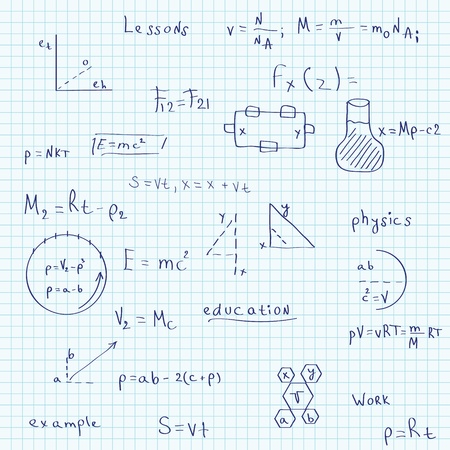 Lessons
ν = N/N_A; M = m/ν = m₀N_A;
e_t
o
e_h
F_x(z) =
F₁₂ = F₂₁
x
y
x = Mp - c2
p = NKT
E = mc²
S = Vt, x = x + vt
M₂ = Rt - ρ2
y
x
y
x
physics
p = V₂ - p²
p = a - b
E = mc²
ab
c² = V
V₂ = Mc
education
pV = νRT = m/M RT
b
a
p = ab - 2(c + p)
x
y
V
a
b
Work
example
S = vt
p = Rt